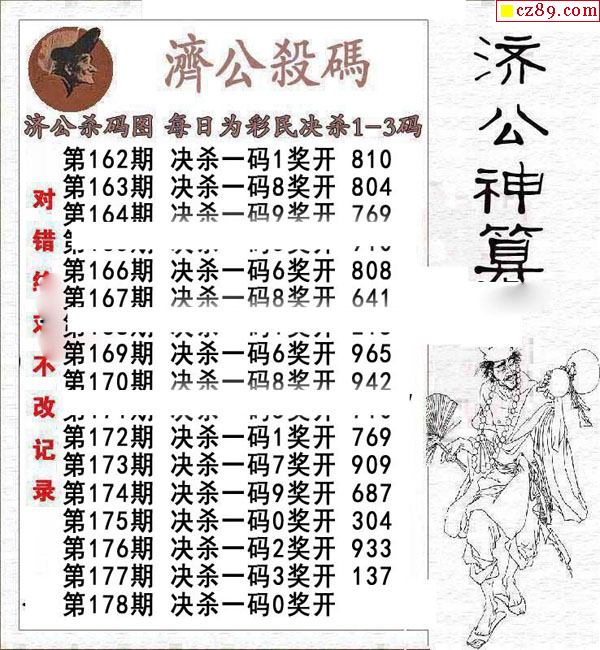 cz89.com
濟公殺碼
济公杀码图 每日为彩民决杀1-3码
第162期 决杀一码1奖开 810
第163期 决杀一码8奖开 804
第164期 决杀一码9奖开 769
第166期 决杀一码6奖开 808
第167期 决杀一码8奖开 641
第169期 决杀一码6奖开 965
第170期 决杀一码8奖开 942
第172期 决杀一码1奖开 769
第173期 决杀一码7奖开 909
第174期 决杀一码9奖开 687
第175期 决杀一码0奖开 304
第176期 决杀一码2奖开 933
第177期 决杀一码3奖开 137
第178期 决杀一码0奖开
对错
不改记录
济公神算